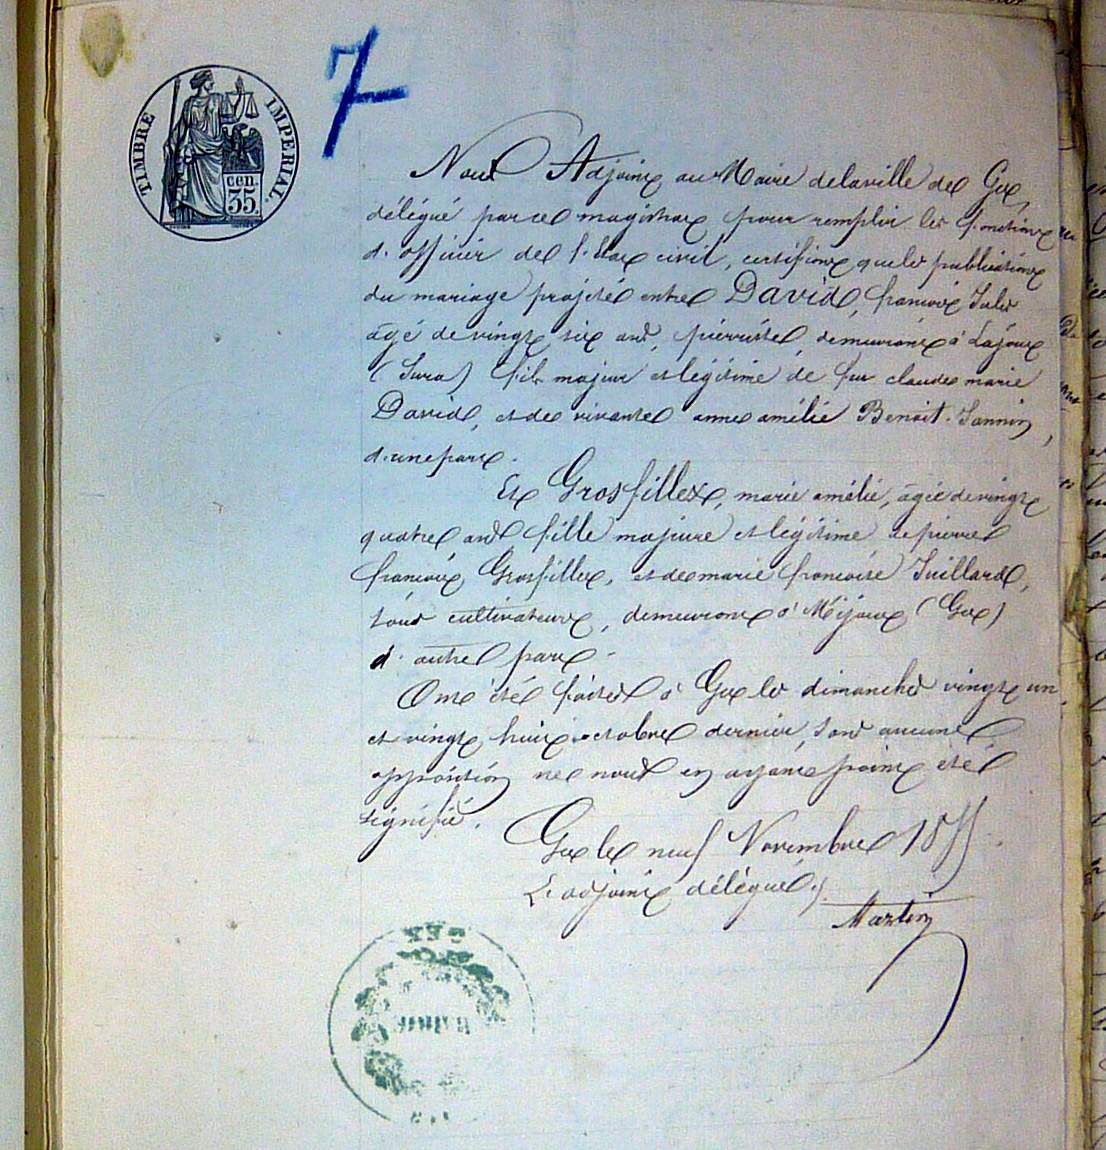 TIMBRE IMPERIAL
cen.
35.
7
Nous Adjoint au Maire de la ville de Gex,
délégué par ce magistrat pour remplir les fonctions
d'officier de l'état civil, certifions que les publications
du mariage projeté entre David, françois Jules
âgé de vingt six ans, pierriste, demeurant à Lajoux
(Jura) fils majeur et légitime de feu claude marie
David, et de vivante anne amélie Benoit-Jannin,
d'une part.
Et Grosfillex, marie amélie, âgée de vingt
quatre ans fille majeure et légitime de pierre
françois Grosfillex, et de marie françoise Juillard,
tous cultivateurs, demeurant à Mijoux (Gex)
d'autre part.
Ont été faites à Gex les dimanches vingt un
et vingt huit octobre dernier, sans aucune
opposition ne nous en ayant point été
signifié.
Gex le neuf Novembre 1855.
L'adjoint délégué,
Martin
GEX